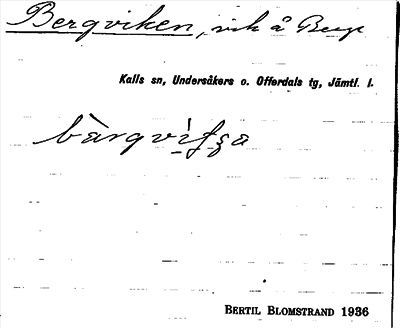 Bergviken, vik å Berge
Kalls sn, Undersåkers o. Offerdals tg, Jämtl. l.
BERTIL BLOMSTRAND 1936